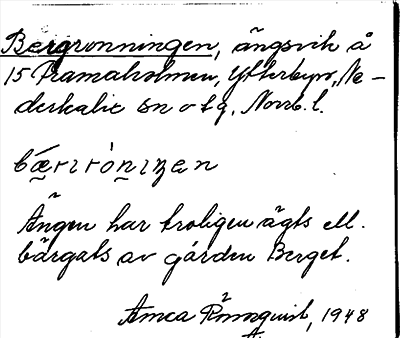 Bergronningen, ängsvik å
15 Framaholmen, Ytterbyn, Ne-
derkalix sn o tg, Norrb. l.
Ängen har troligen ägts ell.
bärgats av gården Berget.
Rönnquist, 1948